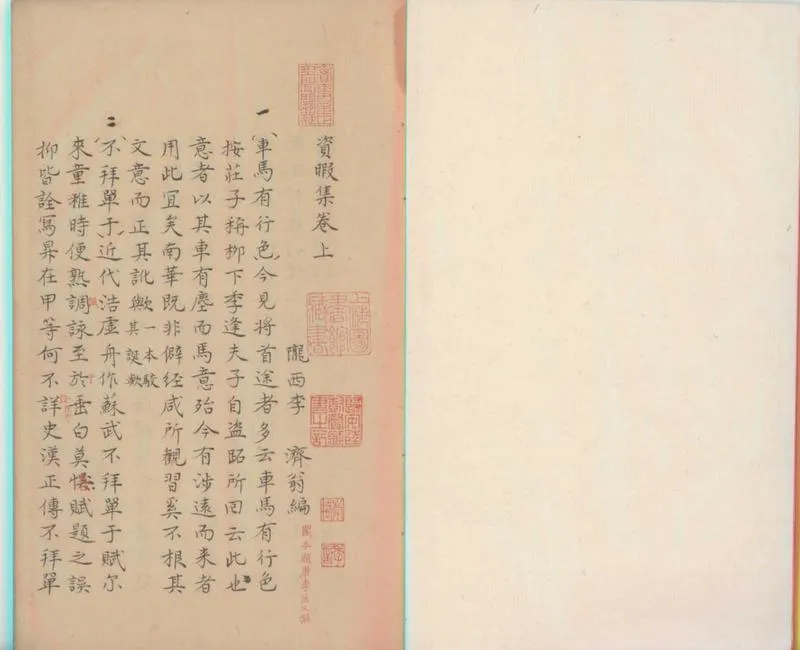 資暇集卷上
上海圖書館藏書
隴西李 濟翁編
一
車馬有行色今見將首途者多云車馬有行色
按莊子稱栁下季逢夫子自盜跖所回云此也
意者以其車有塵而馬意殆今有涉遠而来者
用此宜矣南華既非僻經咸所觀習奚不根其
文意而正其訛歟一本駁其誕歟
二
不拜單于近代浩虛舟作蘇武不拜單于賦尔
來童稚時便熟調詠至於垂白莫悟賦題之誤
抑皆詮寫昇在甲等何不詳史漢正傳不拜單